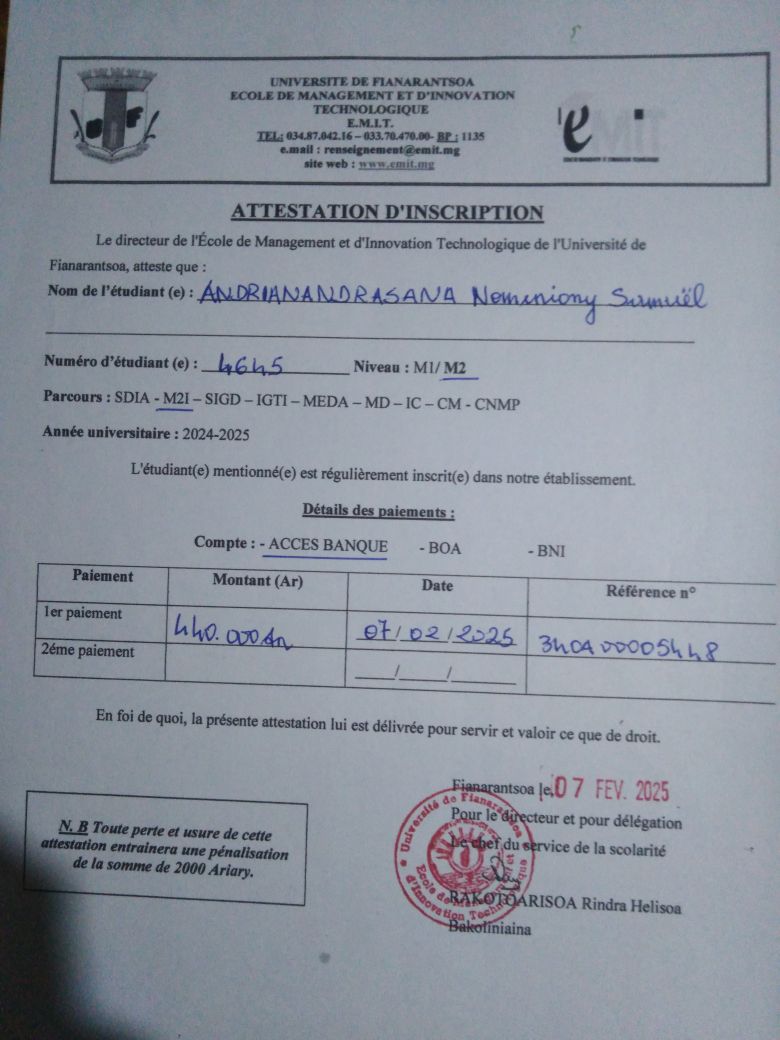 UNIVERSITE DE FIANARANTSOA
ECOLE DE MANAGEMENT ET D'INNOVATION
TECHNOLOGIQUE
E.M.I.T.
TEL: 034.87.042.16 – 033.70.470.00- BP : 1135
e.mail : renseignement@emit.mg
site web : www.emit.mg
eMIT
ATTESTATION D'INSCRIPTION
Le directeur de l'École de Management et d'Innovation Technologique de l'Université de
Fianarantsoa, atteste que :
Nom de l'étudiant (e) : ANDRIANANDRASANA Nomeniony Samuël
Numéro d'étudiant (e) : 4645 Niveau : M1/ M2
Parcours : SDIA - M2I – SIGD – IGTI – MEDA – MD – IC – CM - CNMP
Année universitaire : 2024-2025
L'étudiant(e) mentionné(e) est régulièrement inscrit(e) dans notre établissement.
Détails des paiements :
Compte : - ACCES BANQUE - BOA - BNI
Paiement Montant (Ar) Date Référence n°
1er paiement 440.000Ar 07/02/2025 340A00005448
2éme paiement ___/___/___
En foi de quoi, la présente attestation lui est délivrée pour servir et valoir ce que de droit.
Fianarantsoa le, 07 FEV. 2025
Pour le directeur et pour délégation
Le chef du service de la scolarité
RAKOTOARISOA Rindra Helisoa
Bakoliniaina
N. B Toute perte et usure de cette
attestation entrainera une pénalisation
de la somme de 2000 Ariary.
Université de Fianarantsoa
Ecole de Management et
d'Innovation Technologique